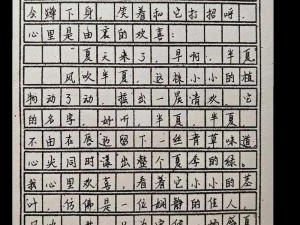 会蹲下身，笑着和它打招呼，
心里是由衷的欢喜：
“夏天来了，早啊，半夏。”
风吹半夏，这株小小的植
物动了动，摇出一层清欢。它
的名字，好听，半夏，半夏，
不由在唇边留下一丝青草味道，
心尖同时漾出整个夏季的绿。
我心里欢喜，看着它小小的
叶，仿佛是一位娴静的佳人